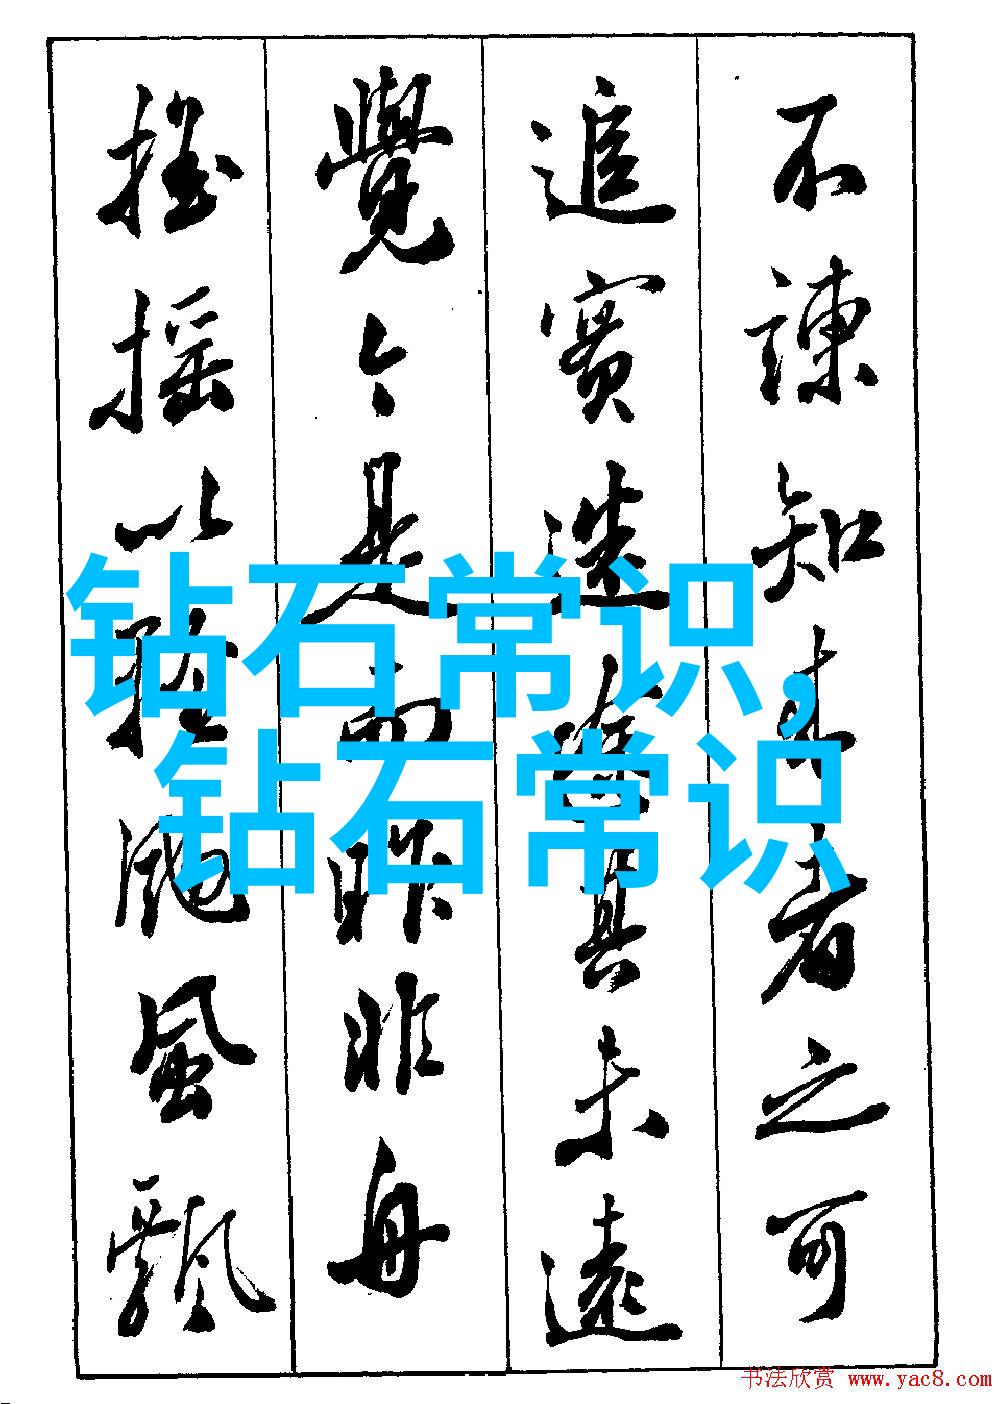 不諫知来者之可
追實迷途其未遠
覺今是而昨非舟
摇摇以輕颺風飄
钻石常识,
钻石常识
书法欣赏 www.yac8.com